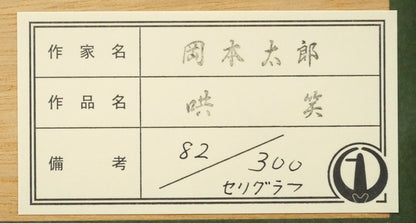 作家名 岡本太郎
作品名 哄笑
備考 82/300
セリグラフ